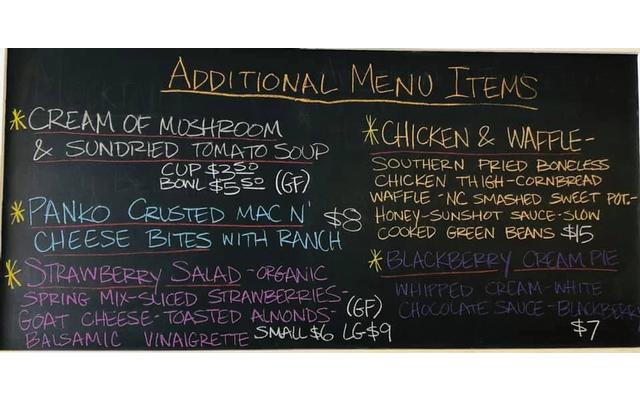 ADDITIONAL MENU ITEMS
*CREAM OF MUSHROOM
& SUNDRIED TOMATO SOUP
CUP $3.50
BOWL $5.50 (GF)
*PANKO CRUSTED MAC N' $8
CHEESE BITES WITH RANCH
*STRAWBERRY SALAD - ORGANIC
SPRING MIX - SLICED STRAWBERRIES -
GOAT CHEESE - TOASTED ALMONDS - (GF)
BALSAMIC VINAIGRETTE SMALL $6 LG $9
*CHICKEN & WAFFLE -
SOUTHERN FRIED BONELESS
CHICKEN THIGH - CORNBREAD
WAFFLE - NC SMASHED SWEET POT. -
HONEY - SUNSHOT SAUCE - SLOW
COOKED GREEN BEANS $15
*BLACKBERRY CREAM PIE
WHIPPED CREAM - WHITE
CHOCOLATE SAUCE - BLACKBERRY
$7